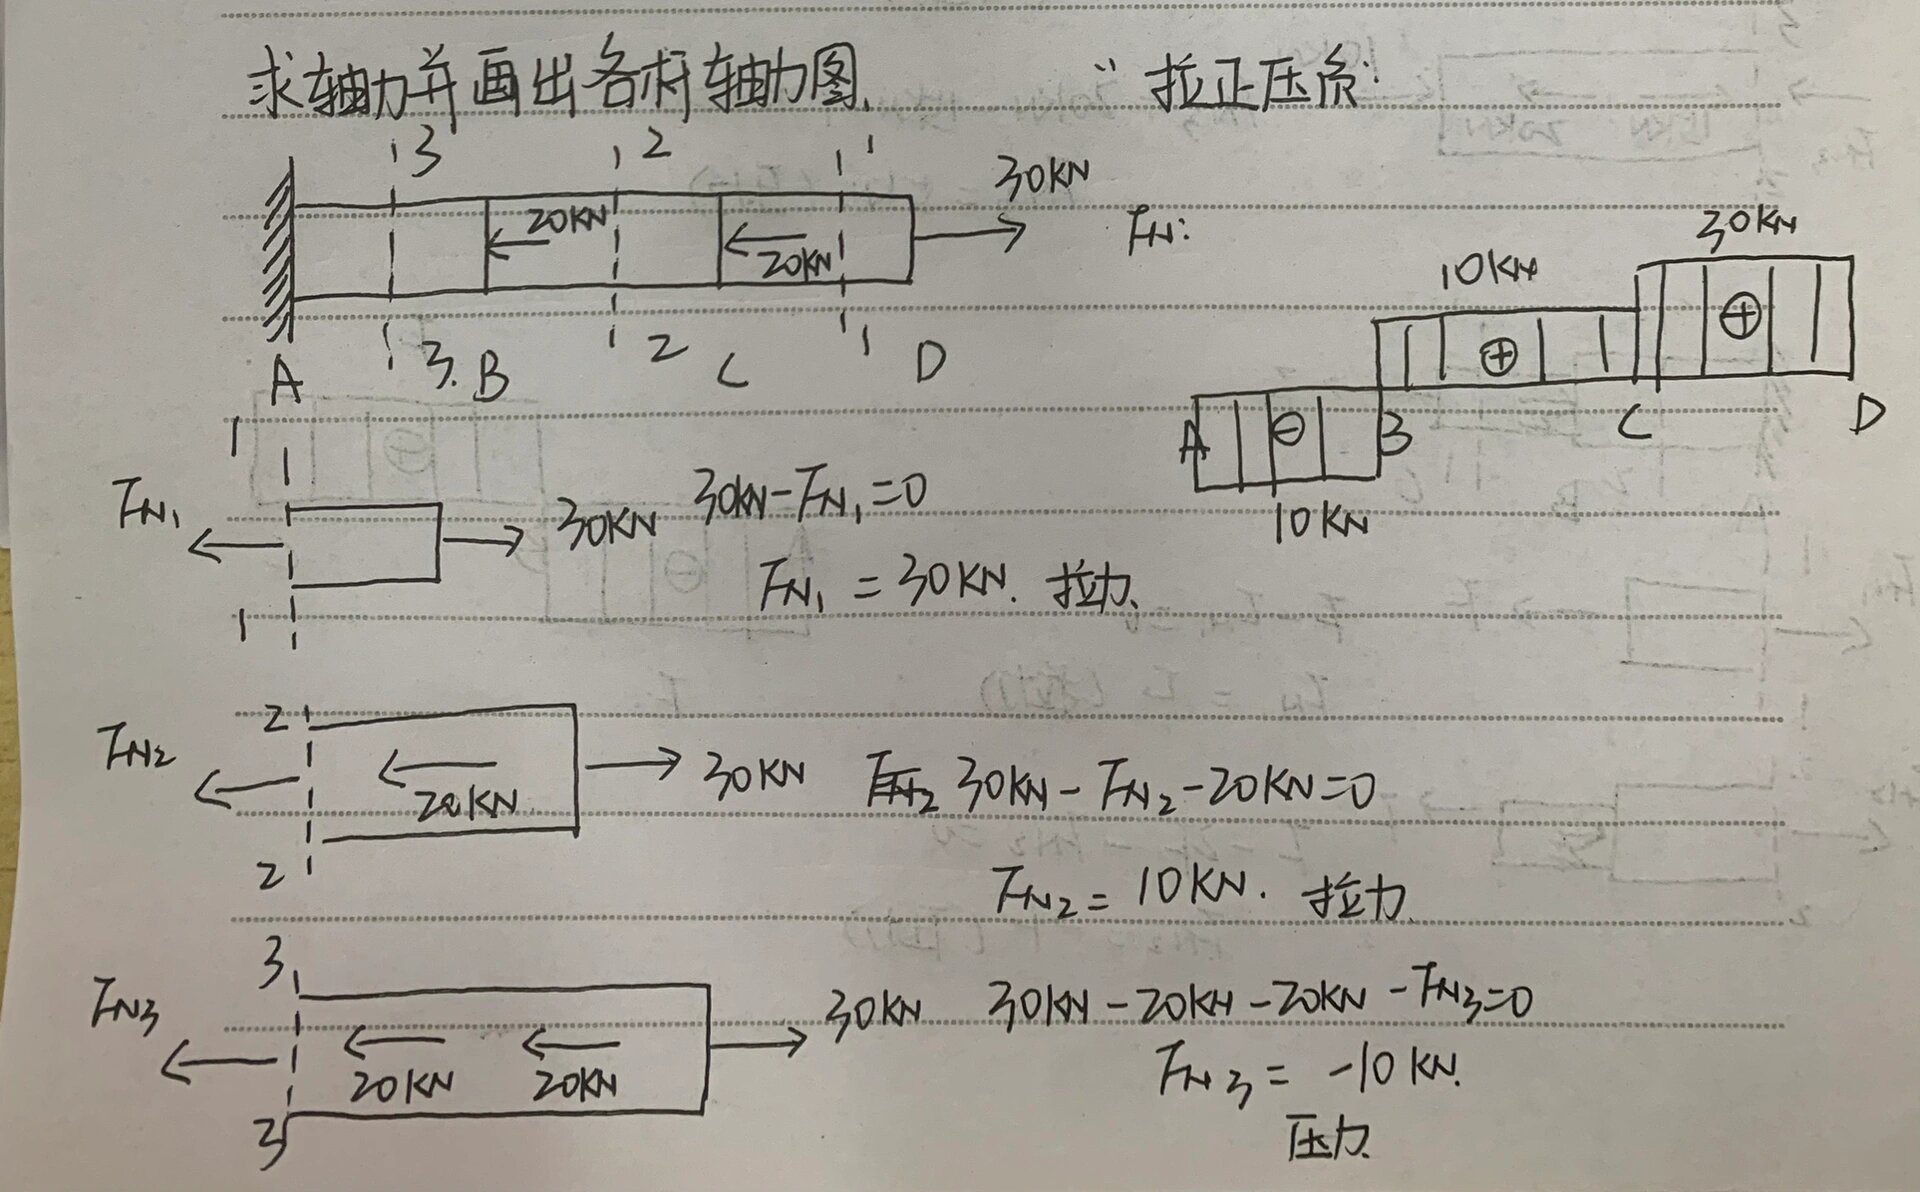 求轴力并画出各杆轴力图.
"拉正压负"
3 2 1
30KN
20KN
20KN
3. 2 1
A B C D
FN:
30KN
10KN
⊕
⊕
A ⊖ B C D
10KN
1
FN₁ 30KN 30KN-FN₁=0
FN₁=30KN. 拉力.
1
2
FN₂ 20KN 30KN FN₂ 30KN-FN₂-20KN=0
2
FN₂=10KN. 拉力.
3
FN3 20KN 20KN 30KN 30KN-20KN-20KN-FN3=0
FN3=-10KN.
3
压力.